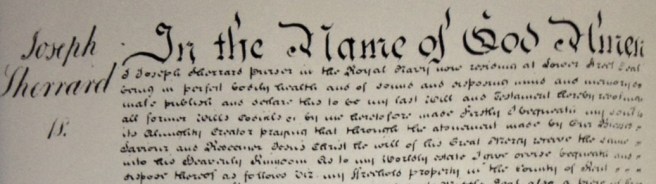 Joseph
Sherrard
Is.
In the Name of God Amen
I Joseph Sherrard purser in the Royal Navy now residing at Lower Street Deal
being in perfect bodily health and of sound and disposing mind and memory
make publish and declare this to be my last Will and Testament thereby revoking
all former Wills by me heretofore made Firstly I bequeath my soul
to its Almighty Creator praying that through the atonement made by Our Blessed
Saviour and Redeemer Jesus Christ he will of his Great Mercy receive the same
into his Heavenly Kingdom As to my Worldly estate I give devise bequeath and
dispose thereof as follows Viz. my Freehold property in the County of Kent
Deal also a piece of